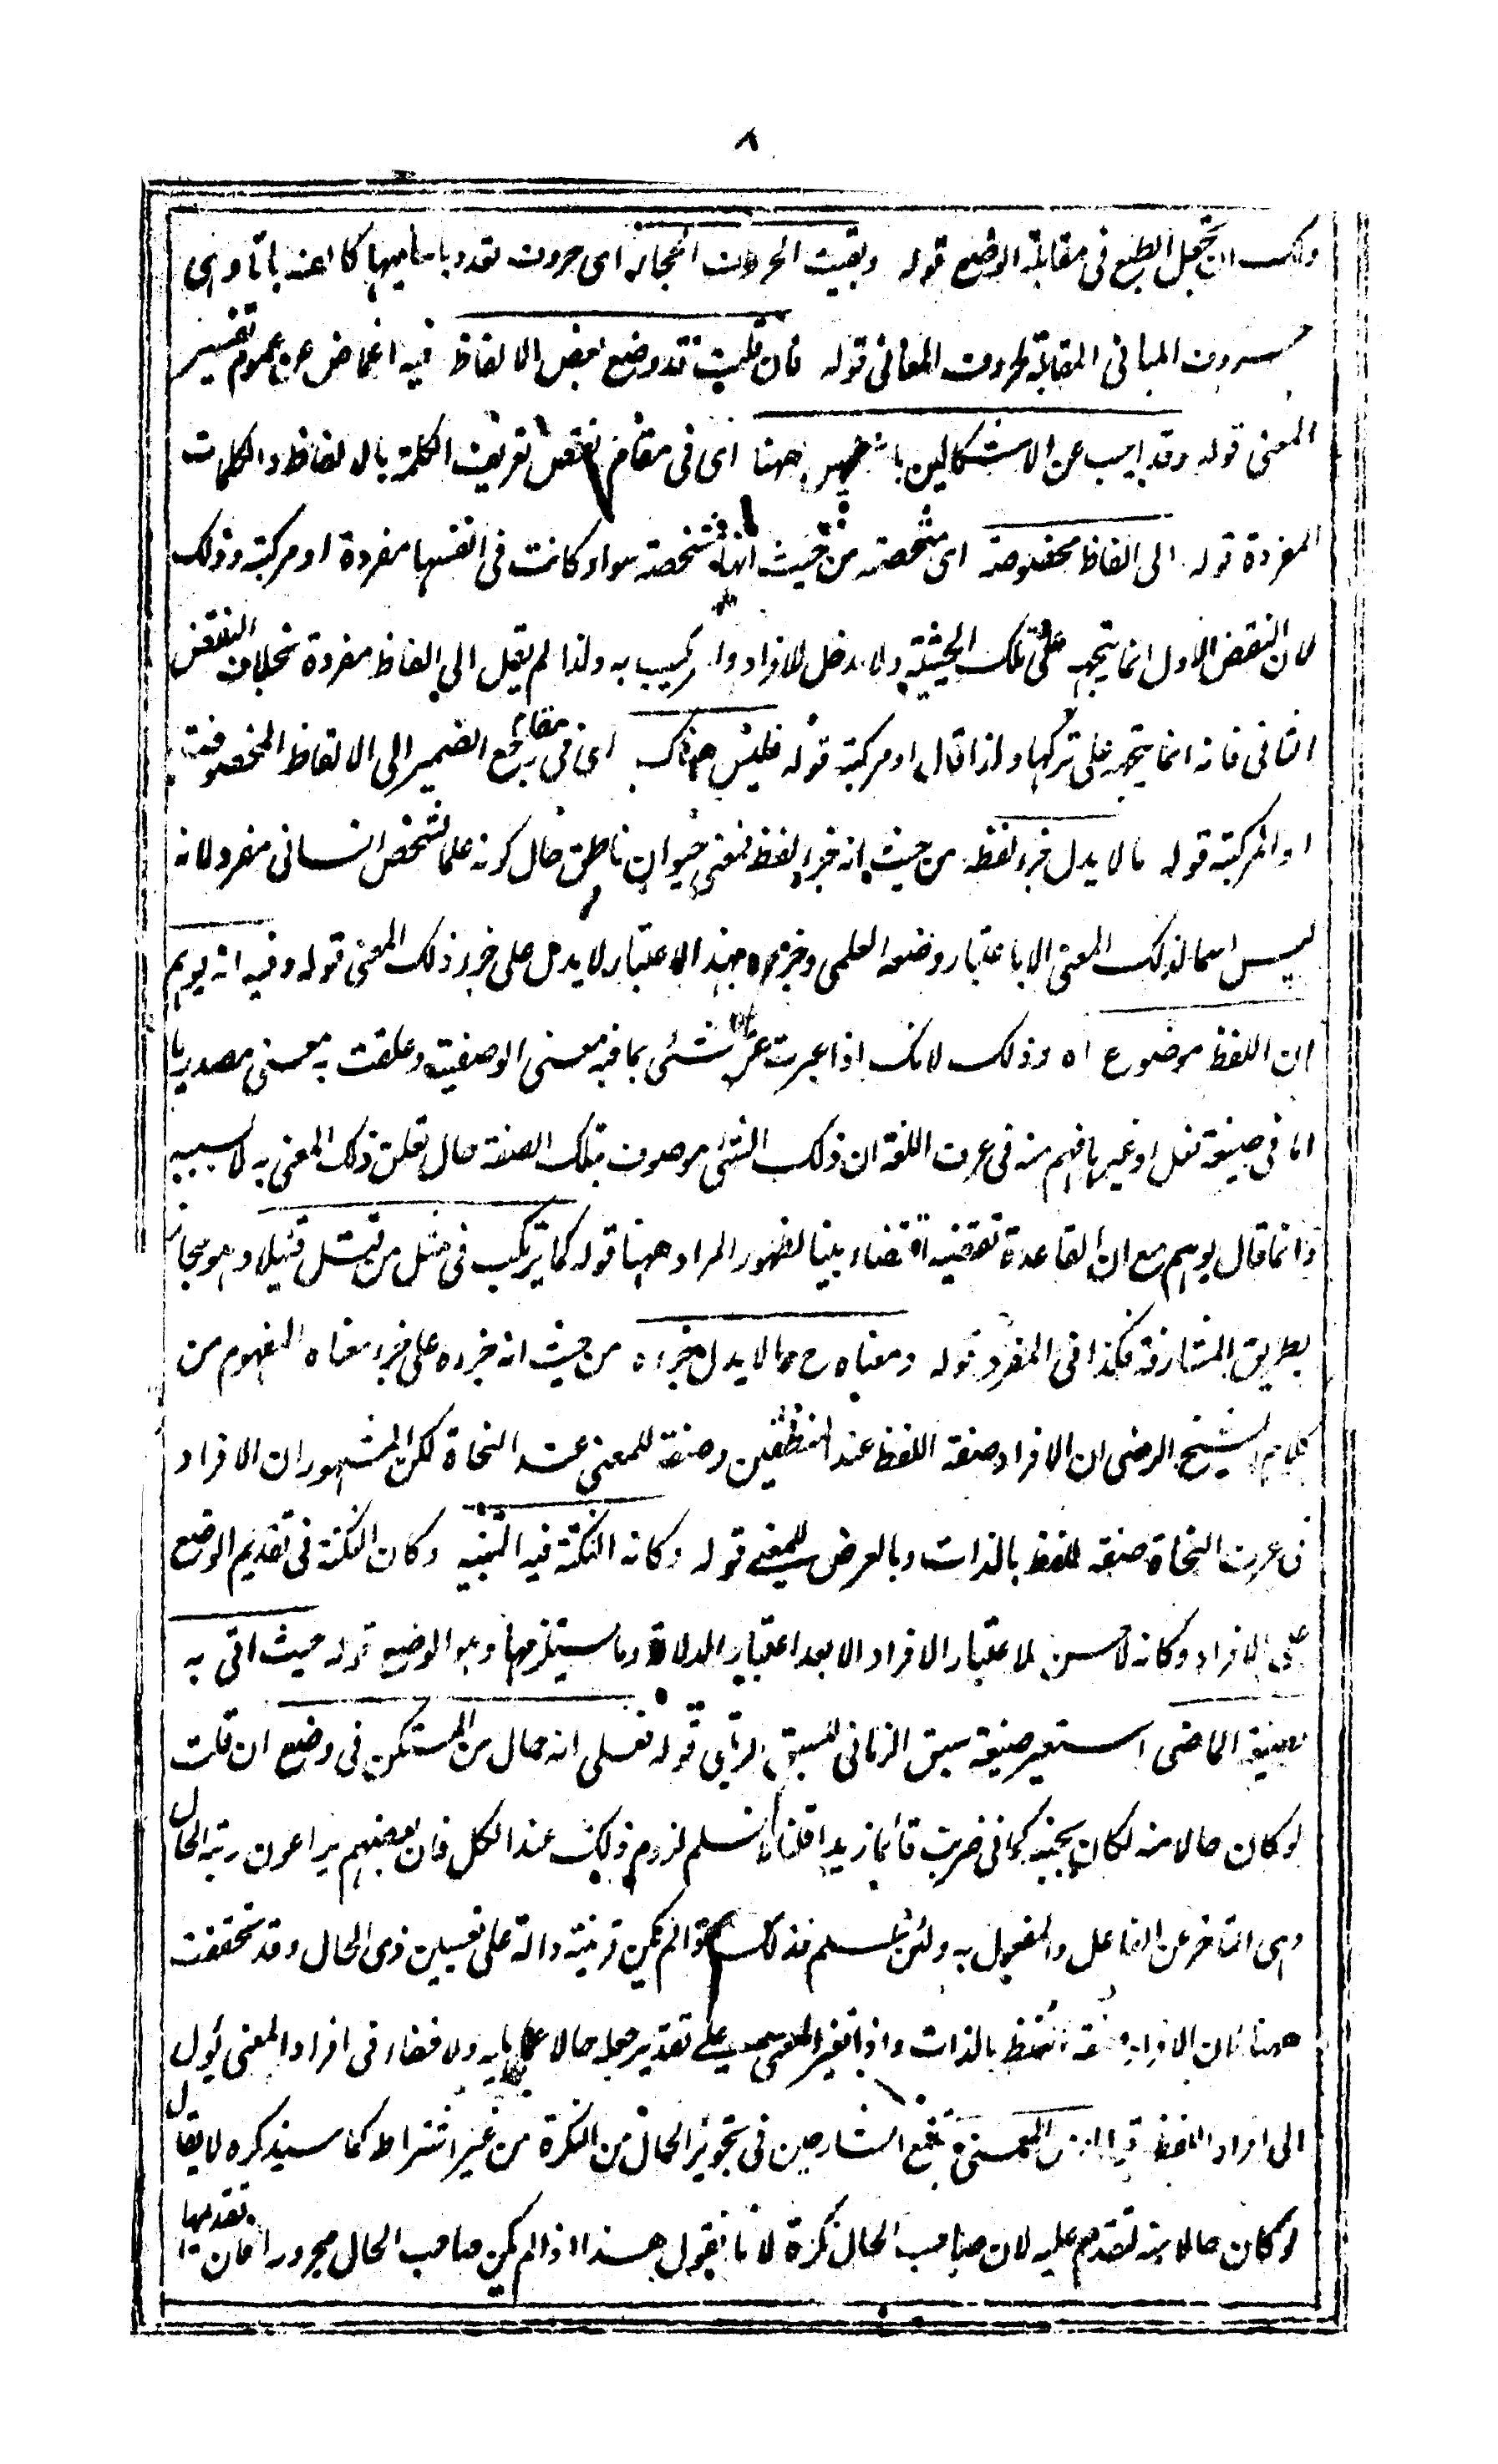 ٨
ولك ان تجعل الطبع فى مقابلة الوضع قوله وبقيت الحروف الهجائية اى حروف تعدد باساميها كالف با تا وهى
حروف المبانى المقابلة لحروف المعانى قوله فان قلت قد وضع بعض الالفاظ فيه اغماض عن عموم تفسير
المعنى قوله وقد اجيب عن الاشكالين بانه ههنا اى فى مقام نقض تعريف الكلمة بالالفاظ والكلمات
المفردة قوله الى الفاظ مخصوصة اى مشخصة من حيث انها مشخصة سواء كانت فى انفسها مفردة او مركبة وذلك
لان النقض الاول انما يتجه على تلك الحيثية ولا دخل للافراد والتركيب به ولذا لم يقل الى الفاظ مفردة بخلاف النقض
الثانى فانه انما يتجه على تركها ولذا قال او مركبة قوله فليس هناك اى فى مقام رجع الضمير الى الالفاظ المخصوصة
او المركبة قوله ما لا يدل جزء لفظه من حيث انه جزء لفظ فمعنى حيوان ناطق حال كونه علما لشخص انسانى مفرد لانه
ليس اسما لذلك المعنى الا باعتبار وضعه العلمى وجزءه بهذا الاعتبار لا يدل على جزء ذلك المعنى قوله وفيه انه يوهم
ان اللفظ موضوع اه وذلك لانك اذا عبرت عن شئى بما فيه معنى الوصفية وعلقت به معنى مصدريا
اما فى صيغة فعل او غيرها فهم منه فى عرف اللغة ان ذلك الشئى موصوف بتلك الصفة حال تعلق ذلك المعنى به لا بسببه
وانما قال يوهم مع ان القاعدة تقتضيه اقتضاء بينا لظهور المراد ههنا قوله كما يرتكب فى مثل من قتل قتيلا وهو مجاز
بطريق المشارفة فكذا فى المفرد قوله ومعناه ح ما لا يدل جزءه من حيث انه جزءه على جزء معناه المفهوم من
كلام الشيخ الرضى ان الافراد صفة اللفظ عند المنطقيين وصفة للمعنى عند النحاة لكن المشهور ان الافراد
فى عرف النحاة صفة للفظ بالذات وبالعرض للمعنى قوله وكانه النكتة فيه التنبيه وكان النكتة فى تقديم الوضع
على الافراد وكانه لا حسن لاعتبار الافراد الا بعد اعتبار الدلالة وما يستلزمها وهو الوضع قوله حيث اتى به
بصيغة الماضى استعير صيغة سبق الزمانى للسبق الرتبى قوله فعلى انه حال من المستكن فى وضع ان قلت
لو كان حالا منه لكان بجنبه كما فى ضربت قائما زيدا قلنا لا نسلم لزوم ذلك عند الكل فان بعضهم يراعون رتبة الحال
وهى التاخر عن الفاعل والمفعول به ولئن سلم فذلك لو لم يكن قرينة دالة على تعيين ذى الحال وقد تحققت
ههنا فان الافراد صفة اللفظ بالذات واذا تغير المعنى على تقدير جعله حالا ولا خفاء فى افراد المعنى يؤول
الى افراد اللفظ المعنى الشارحين فى تجويز الحال من النكرة من غير اشتراط كما سيذكره لا يقال
لو كان حالا منه لتقدم عليه لان صاحب الحال نكرة لانا نقول هذا اذا لم يكن صاحب الحال مجرورا فان تقديمها